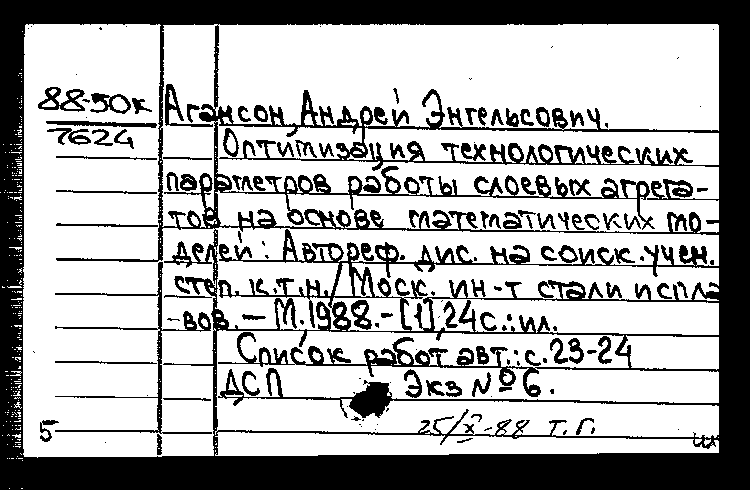 88-50к Агансон, Андрей Энгельсович.
7624 Оптимизация технологических
параметров работы слоевых агрега-
тов на основе математических мо-
делей: Автореф. дис. на соиск. учен.
степ. к.т.н./ Моск. ин-т стали и спла
-вов. — М, 1988. - [1], 24 с.: ил.
Список работ авт.: с. 23-24
ДСП Экз № 6.
5 25/X-88 Т.Г.